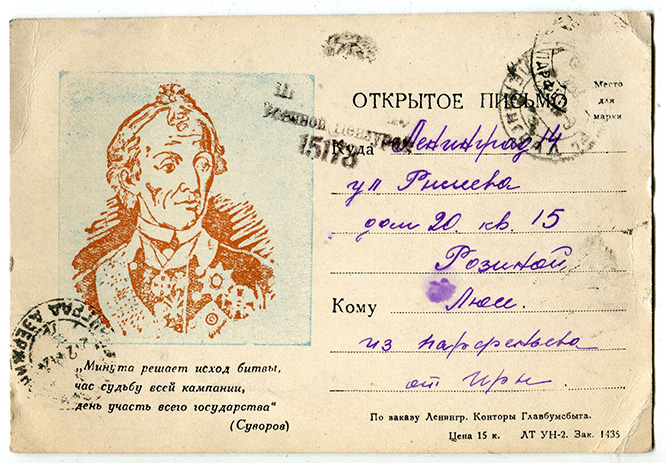 ОТКРЫТОЕ ПИСЬМО
Место
для
марки
Военной Цензурой
15178
Куда Ленинград 14
ул Рылеева
дом 20. кв. 15
Розиной
Кому Люси.
из Парфеньева
от Иры.
„Минута решает исход битвы,
час судьбу всей кампании,
день участь всего государства“
(Суворов)
По заказу Ленингр. Конторы Главбумсбыта.
Цена 15 к. ЛТ УН-2. Зак. 1435